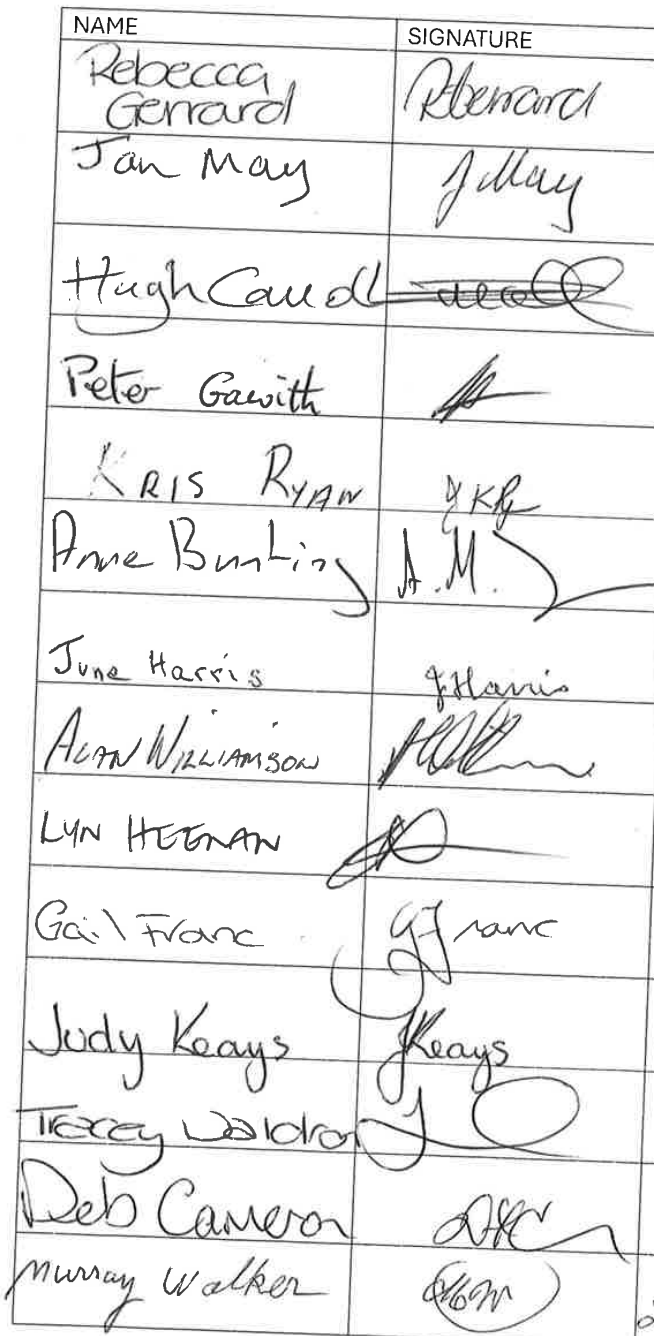 NAME SIGNATURE
Rebecca
Gerrard RGerrard
Jan May J May
Hugh
Peter Gawith
KRIS RYAN
Anne Bunting A.M.
June Harris J Harris
ALAN WILLIAMSON
LYN HEENAN
Gail Franc G Franc
Judy Keays JKeays
Tracey Waldron
Deb Cameron
Murray Walker